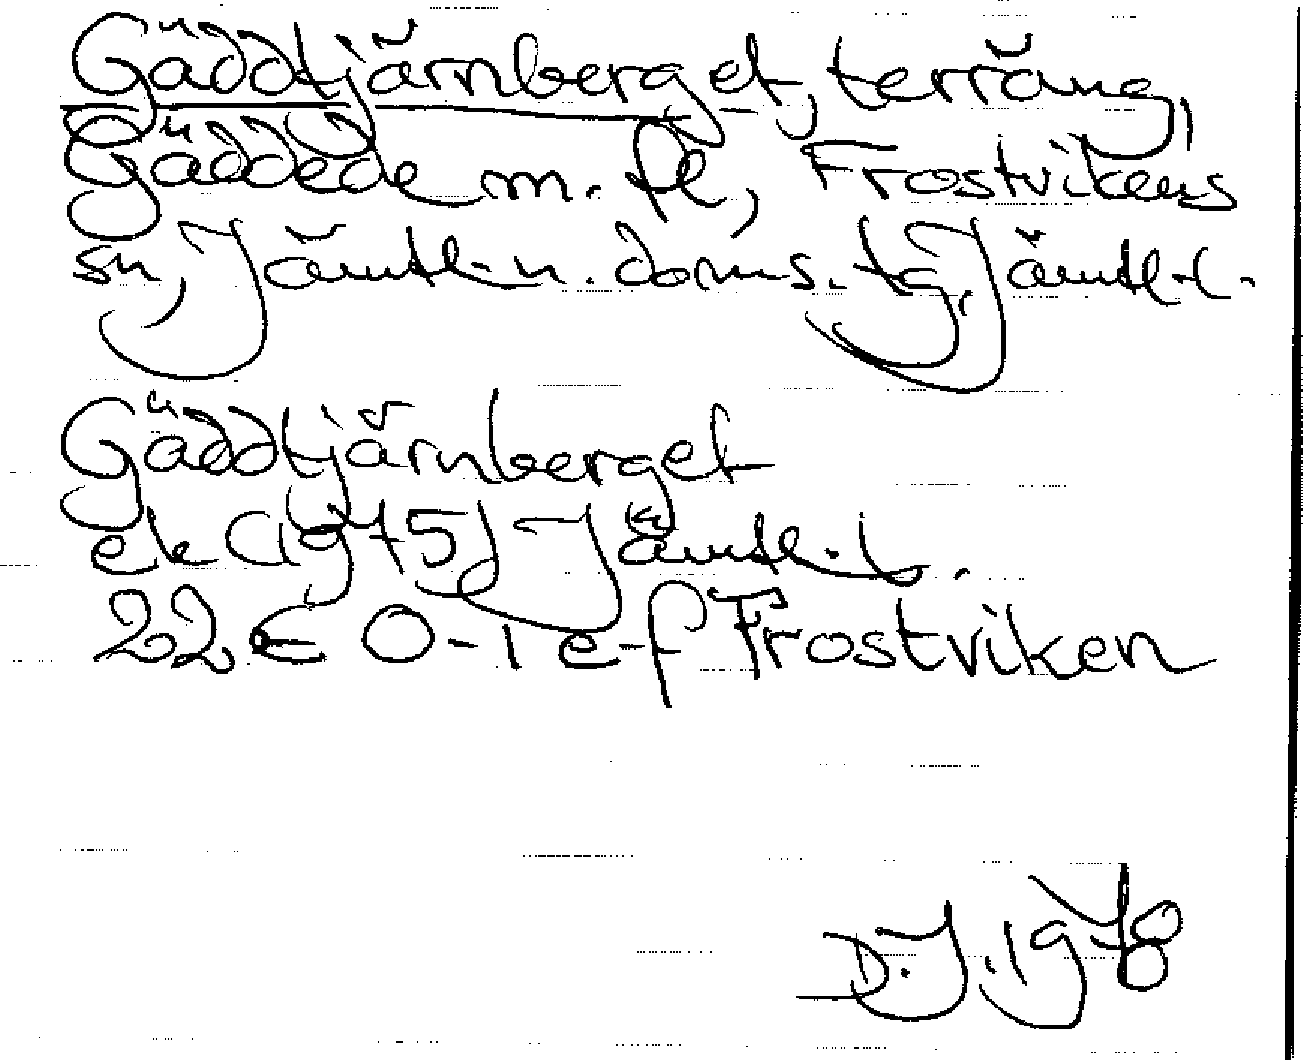 Gäddtjärnberget, terräng,
Gäddede m. fl, Frostvikens
sn, Jämtl. n. doms. tg, Jämtl. l.
Gäddtjärnberget
ek (1975) Jämtl. l.
22E 0-1 e-f Frostviken
D.J. 1978